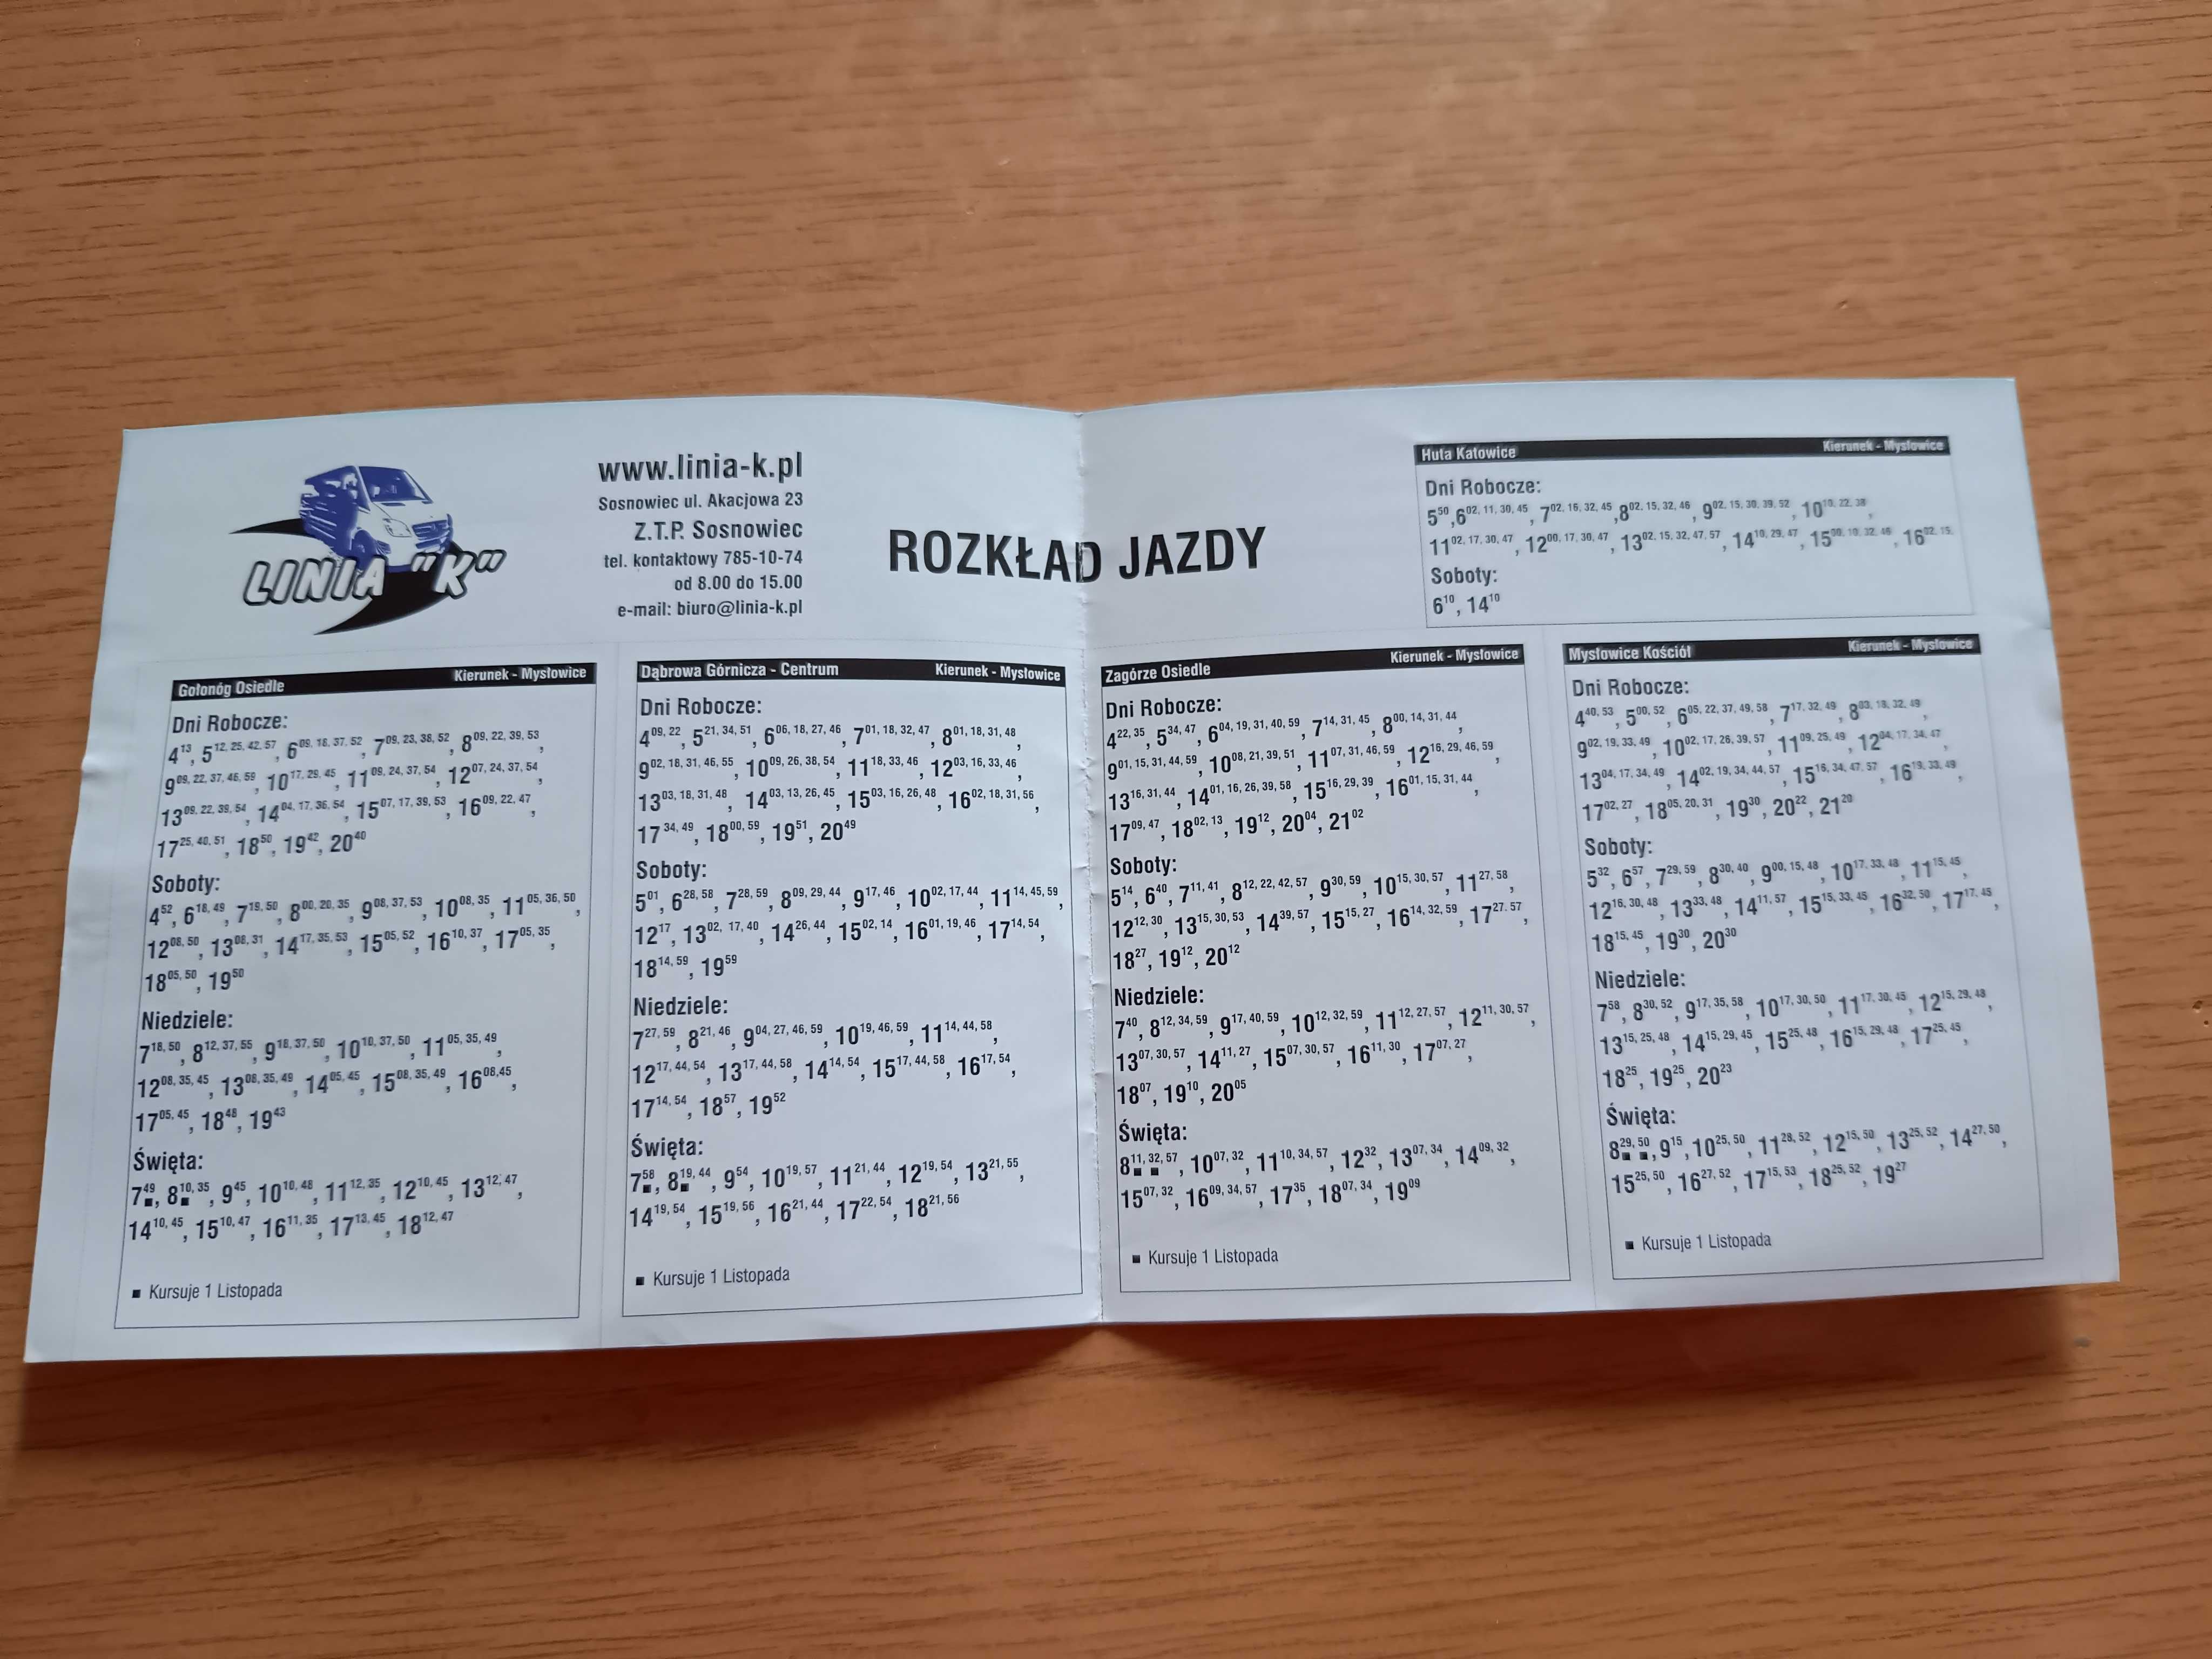 LINIA "K"
www.linia-k.pl
Sosnowiec ul. Akacjowa 23
Z.T.P. Sosnowiec
tel. kontaktowy 785-10-74
od 8.00 do 15.00
e-mail: biuro@linia-k.pl
ROZKŁAD JAZDY
Huta Katowice Kierunek - Mysłowice
Dni Robocze:
5 50, 6 02, 11, 30, 45, 7 02, 16, 32, 45, 8 02, 15, 32, 46, 9 02, 15, 30, 39, 52, 10 10, 22, 38,
11 02, 17, 30, 47, 12 00, 17, 30, 47, 13 02, 15, 32, 47, 57, 14 10, 29, 47, 15 00, 10, 32, 46, 16 02, 15,
Soboty:
6 10, 14 10
Gołonóg Osiedle Kierunek - Mysłowice
Dni Robocze:
4 13, 5 12, 25, 42, 57, 6 09, 18, 37, 52, 7 09, 23, 38, 52, 8 09, 22, 39, 53,
9 09, 22, 37, 46, 59, 10 17, 29, 45, 11 09, 24, 37, 54, 12 07, 24, 37, 54,
13 09, 22, 39, 54, 14 04, 17, 36, 54, 15 07, 17, 39, 53, 16 09, 22, 47,
17 25, 40, 51, 18 50, 19 42, 20 40
Soboty:
4 52, 6 18, 49, 7 19, 50, 8 00, 20, 35, 9 08, 37, 53, 10 08, 35, 11 05, 36, 50,
12 08, 50, 13 08, 31, 14 17, 35, 53, 15 05, 52, 16 10, 37, 17 05, 35,
18 05, 50, 19 50
Niedziele:
7 18, 50, 8 12, 37, 55, 9 18, 37, 50, 10 10, 37, 50, 11 05, 35, 49,
12 08, 35, 45, 13 08, 35, 49, 14 05, 45, 15 08, 35, 49, 16 08, 45,
17 05, 45, 18 48, 19 43
Święta:
7 49■, 8 10■, 35, 9 45, 10 10, 48, 11 12, 35, 12 10, 45, 13 12, 47,
14 10, 45, 15 10, 47, 16 11, 35, 17 13, 45, 18 12, 47
■ Kursuje 1 Listopada
Dąbrowa Górnicza - Centrum Kierunek - Mysłowice
Dni Robocze:
4 09, 22, 5 21, 34, 51, 6 06, 18, 27, 46, 7 01, 18, 32, 47, 8 01, 18, 31, 48,
9 02, 18, 31, 46, 55, 10 09, 26, 38, 54, 11 18, 33, 46, 12 03, 16, 33, 46,
13 03, 18, 31, 48, 14 03, 13, 26, 45, 15 03, 16, 26, 48, 16 02, 18, 31, 56,
17 34, 49, 18 00, 59, 19 51, 20 49
Soboty:
5 01, 6 28, 58, 7 28, 59, 8 09, 29, 44, 9 17, 46, 10 02, 17, 44, 11 14, 45, 59,
12 17, 13 02, 17, 40, 14 26, 44, 15 02, 14, 16 01, 19, 46, 17 14, 54,
18 14, 59, 19 59
Niedziele:
7 27, 59, 8 21, 46, 9 04, 27, 46, 59, 10 19, 46, 59, 11 14, 44, 58,
12 17, 44, 54, 13 17, 44, 58, 14 14, 54, 15 17, 44, 58, 16 17, 54,
17 14, 54, 18 57, 19 52
Święta:
7 58■, 8 19■, 44, 9 54, 10 19, 57, 11 21, 44, 12 19, 54, 13 21, 55,
14 19, 54, 15 19, 56, 16 21, 44, 17 22, 54, 18 21, 56
■ Kursuje 1 Listopada
Zagórze Osiedle Kierunek - Mysłowice
Dni Robocze:
4 22, 35, 5 34, 47, 6 04, 19, 31, 40, 59, 7 14, 31, 45, 8 00, 14, 31, 44,
9 01, 15, 31, 44, 59, 10 08, 21, 39, 51, 11 07, 31, 46, 59, 12 16, 29, 46, 59,
13 16, 31, 44, 14 01, 16, 26, 39, 58, 15 16, 29, 39, 16 01, 15, 31, 44,
17 09, 47, 18 02, 13, 19 12, 20 04, 21 02
Soboty:
5 14, 6 40, 7 11, 41, 8 12, 22, 42, 57, 9 30, 59, 10 15, 30, 57, 11 27, 58,
12 12, 30, 13 15, 30, 53, 14 39, 57, 15 15, 27, 16 14, 32, 59, 17 27, 57,
18 27, 19 12, 20 12
Niedziele:
7 40, 8 12, 34, 59, 9 17, 40, 59, 10 12, 32, 59, 11 12, 27, 57, 12 11, 30, 57,
13 07, 30, 57, 14 11, 27, 15 07, 30, 57, 16 11, 30, 17 07, 27,
18 07, 19 10, 20 05
Święta:
8 11■, 32■, 57, 10 07, 32, 11 10, 34, 57, 12 32, 13 07, 34, 14 09, 32,
15 07, 32, 16 09, 34, 57, 17 35, 18 07, 34, 19 09
■ Kursuje 1 Listopada
Mysłowice Kościół Kierunek - Mysłowice
Dni Robocze:
4 40, 53, 5 00, 52, 6 05, 22, 37, 49, 58, 7 17, 32, 49, 8 03, 18, 32, 49,
9 02, 19, 33, 49, 10 02, 17, 26, 39, 57, 11 09, 25, 49, 12 04, 17, 34, 47,
13 04, 17, 34, 49, 14 02, 19, 34, 44, 57, 15 16, 34, 47, 57, 16 19, 33, 49,
17 02, 27, 18 05, 20, 31, 19 30, 20 22, 21 20
Soboty:
5 32, 6 57, 7 29, 59, 8 30, 40, 9 00, 15, 48, 10 17, 33, 48, 11 15, 45,
12 16, 30, 48, 13 33, 48, 14 11, 57, 15 15, 33, 45, 16 32, 50, 17 17, 45,
18 15, 45, 19 30, 20 30
Niedziele:
7 58, 8 30, 52, 9 17, 35, 58, 10 17, 30, 50, 11 17, 30, 45, 12 15, 29, 48,
13 15, 25, 48, 14 15, 29, 45, 15 25, 48, 16 15, 29, 48, 17 25, 45,
18 25, 19 25, 20 23
Święta:
8 29■, 50■, 9 15, 10 25, 50, 11 28, 52, 12 15, 50, 13 25, 52, 14 27, 50,
15 25, 50, 16 27, 52, 17 15, 53, 18 25, 52, 19 27
■ Kursuje 1 Listopada